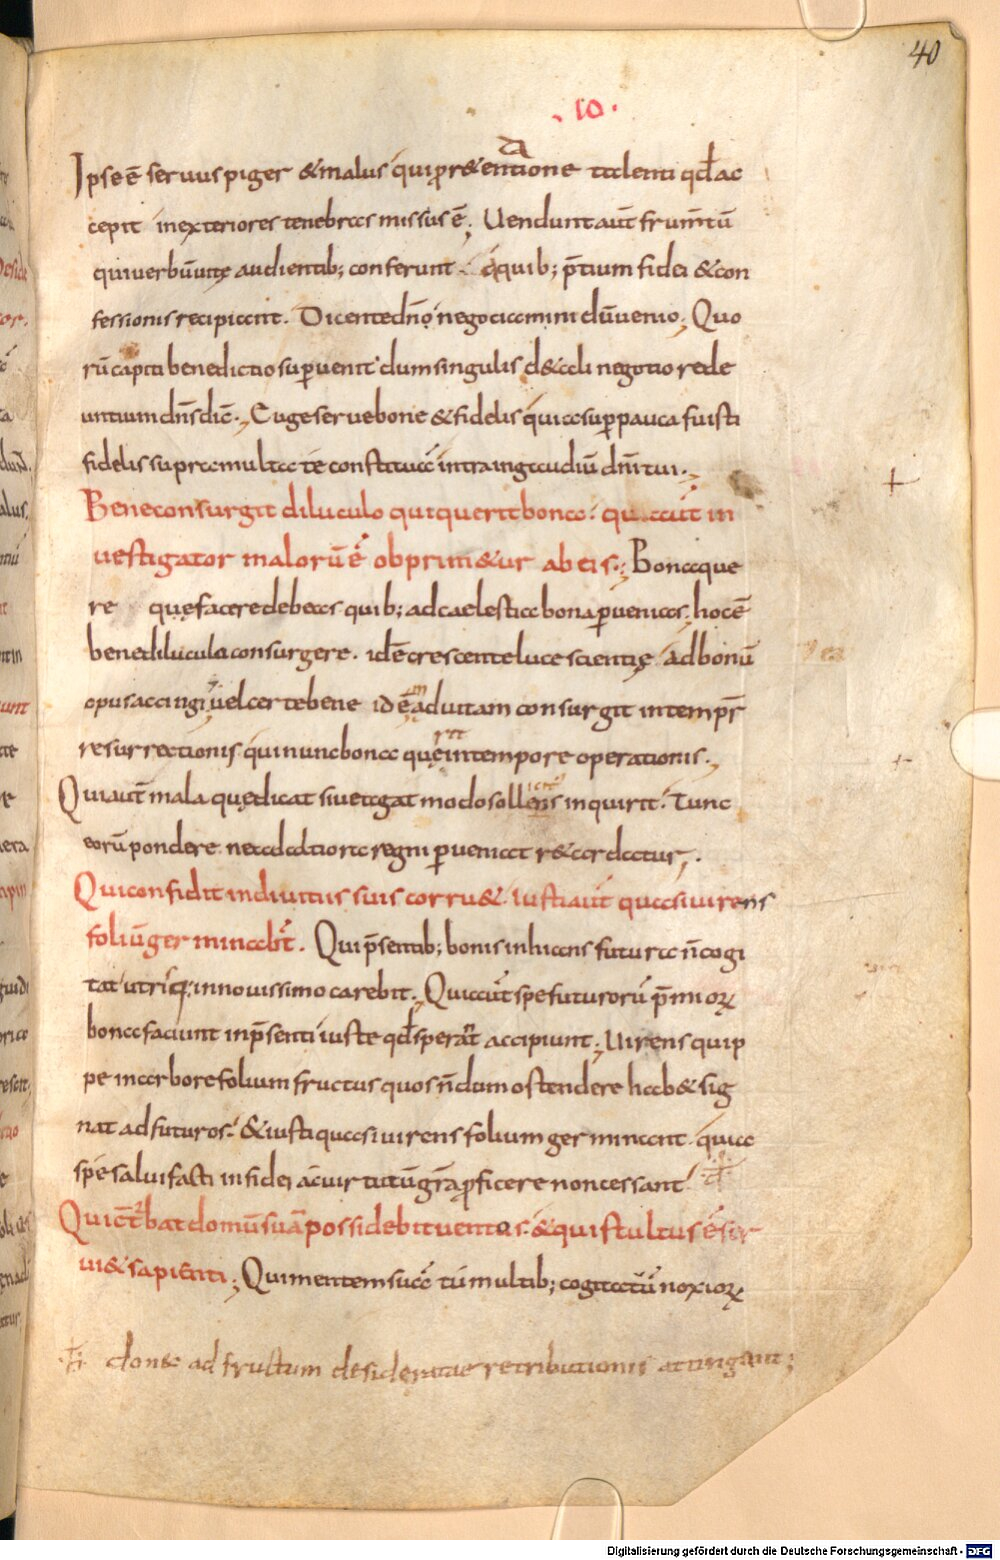 40
. 10 .
Ipse ē seruus piger & malus qui pro r&entione talenti qđ ac
da
cepit in exteriores tenebras missus ē; Uendunt aūt frumtū
qui uerbū uitę audientib; conferunt. a quib; p̄tium fidei & con
fessionis recipiant. Dicente dn̄o negociamini dū uenio; Quo
rū capiti benedictio superuenit dum singulis de tali negotio rede
untium dn̄s dic̄; Euge serue bone & fidelis quia sup pauca fuisti
fidelis supra multa te constituā intra in gaudiū dn̄i tui;
Bene consurgit diluculo qui querit bona. qui aūt in
uestigator malorū ē obprim&ur ab eis; Bona que
re quę facere debeas quib; ad caelestia bona peruenias; hoc ē
bene diluculo consurgere. id ē crescente luce scientię ad bonū
opus accingi; uel certe bene id ē ad uitam consurgit in tempr̄
resurrectionis qui nunc bona quęrit in tempore operationis;
Qui aūt mala quę dicat siue agat modo sollens inquirit. Tunc
eorū pondere ne ad altiora regni perueniat r&ardatur;
Qui confidit in diuitiis suis corru&. iusti aūt quasi uirens
foliū germinabt̄. Qui p̄sentib; bonis inhians futura n̄ cogi
tat utrisq; in nouissimo carebit; Qui aūt spe futurorū p̄mior̄
bona faciunt in p̄senti iuste qđ sperant accipiunt; Uirens quip
pe in arbore folium fructus quos n̄dum ostendere hab& sig
nat ad futuros. & iusti quasi uirens folium germinant. quia
spe salui facti in fidei ac uirtutū gr̄a proficere non cessant
Qui cōt̄bat domū suā possidebit uentos. & qui stultus ē ser
ui& sapienti; Qui mentem suā tumultib; cogitatiū noxior̄
don& ad fructum desideratae retributionis attingant;
Digitalisierung gefördert durch die Deutsche Forschungsgemeinschaft - DFG